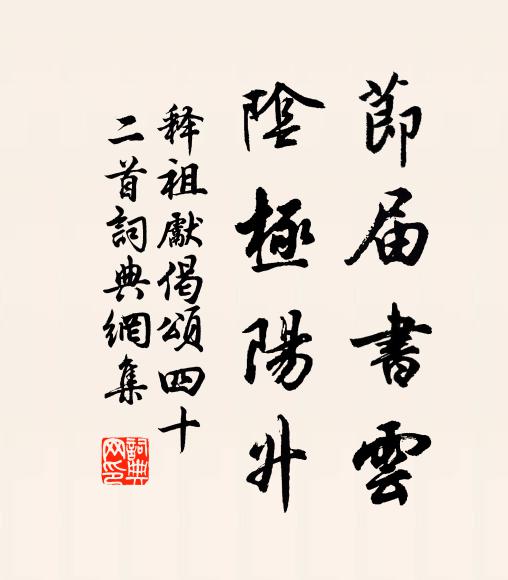 節届書雲
陰極陽升
释祖獻偈頌四十
二首詞典網集
詞典网印